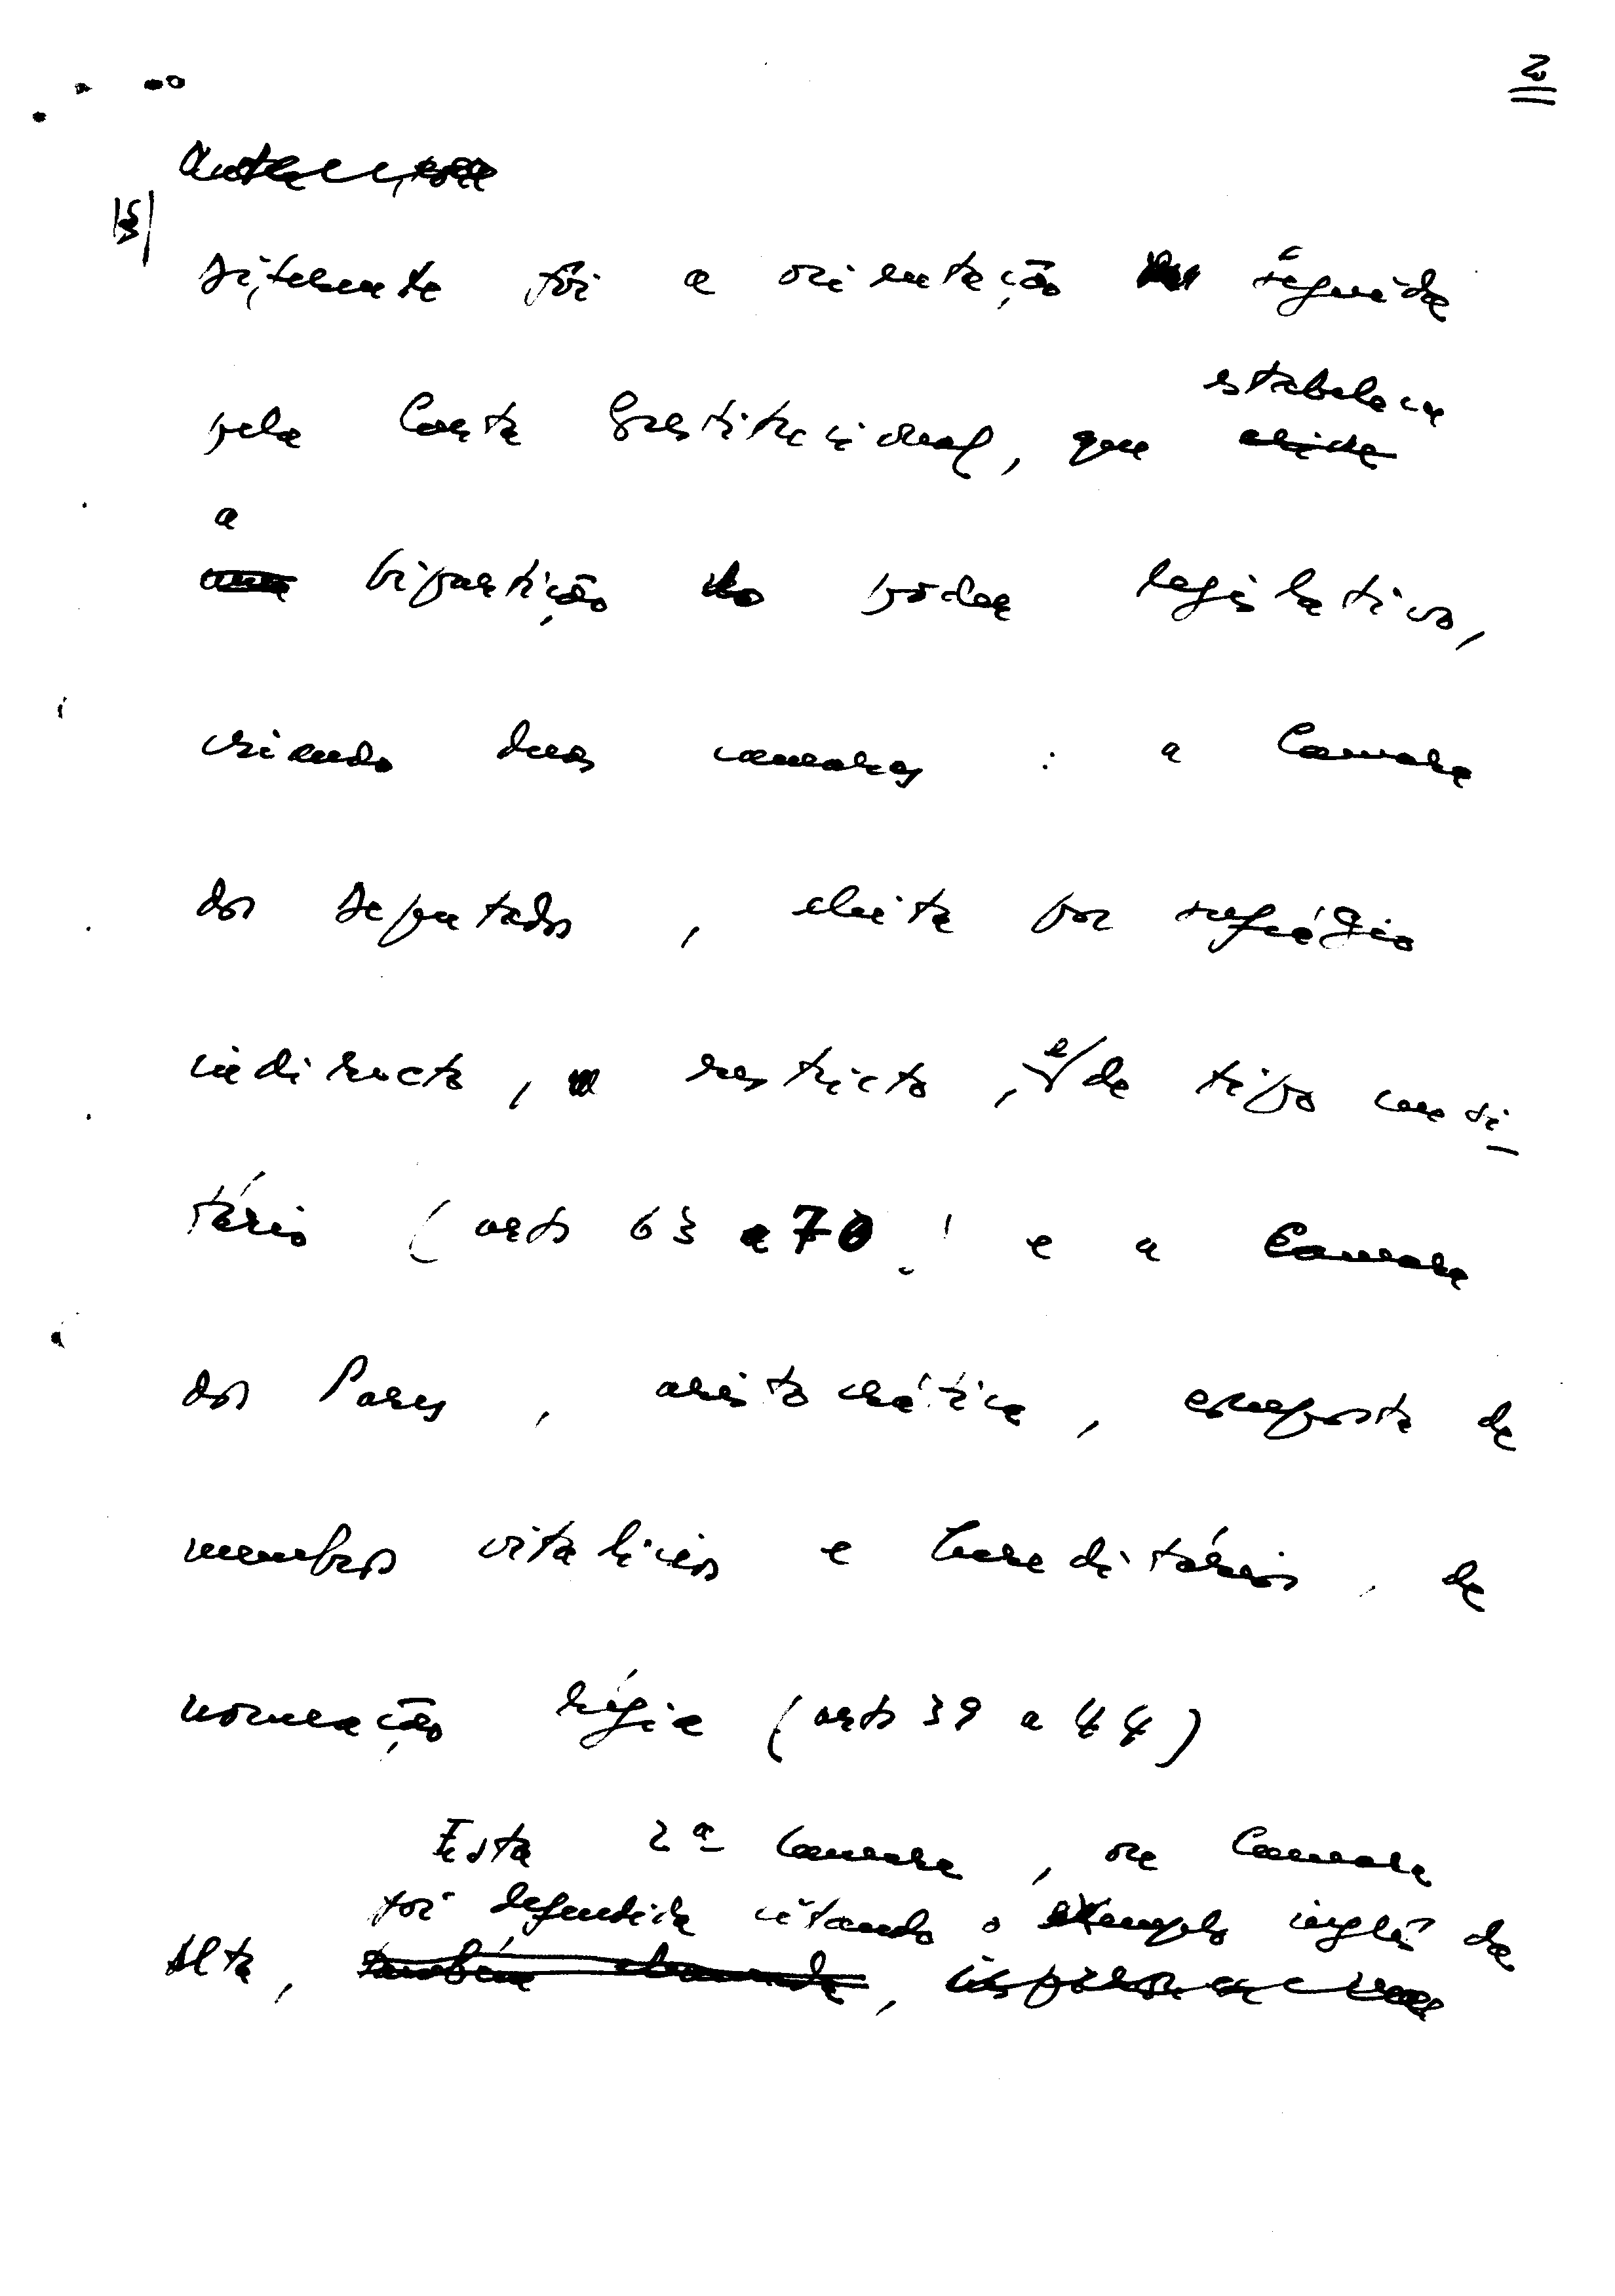 2
diferente foi a orientação seguida
estabelece
pela Carta Constitucional, que cria
a
uma bipartição do poder legislativo,
criando duas camaras : a Camara
dos Deputados, eleita por sufrágio
indirecto, restricto, e de tipo censi-
tário (arts 63 a 70) e a Camara
dos Pares, aristocrática, composta de
membros vitalicios e hereditários, de
nomeação régia (arts 39 a 44)
Esta 2ª Camara, ou Camara
foi defendida citando o exemplo inglês da
Alta, também chamada,